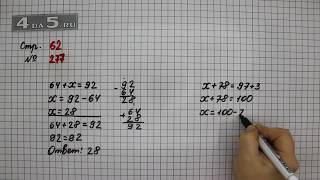 4DA5.RU
Стр. 62
№ 277
64+x=92
x=92-64
x=28
64+28=92
92=92
Ответ: 28
-92
64
28
+64
28
92
x+78=97+3
x+78=100
x=100-7